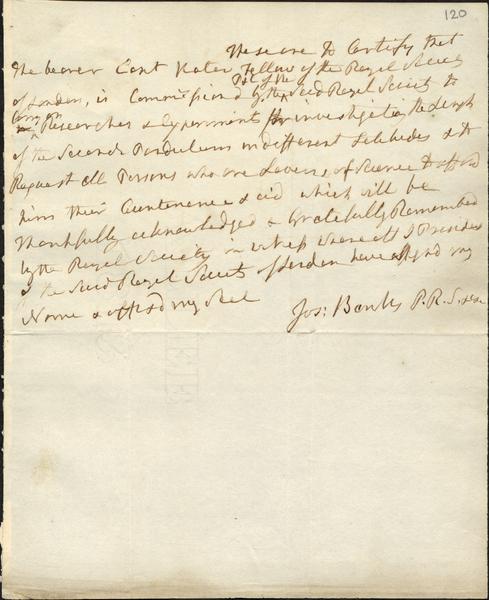 120
These are to Certify that
the bearer Capt Kater Fellow of the Royal Society
Pt of the
of London, is Commission'd by the Said Royal Society to
Carry on
Researches & Experiments for investigating the Length
of the Seconds Pendulum in different Latitudes & to
Request all Persons who are Lovers of Science to afford
him their Countenance & aid which will be
thankfully acknowledged & Gratefully Remembered
by the Royal Society in witness whereoff I President
of the Said Royal Society of London have affixd my
Name & affixd my Seal
Jos: Banks P.R.S.